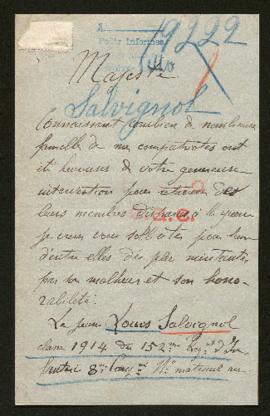 A
Pedir informes
19222
Majesté
Salvignol
Connaissant combien de nombreuses
familles de mes compatriotes ont
été heureuses de votre généreuse
intervention pour retrouver des
leurs membres disparus à la guerre
je viens vous solliciter pour l'une
d'entre elles des plus méritantes
par son malheur et son hono-
rabilité:
Le jeune Louis Salvignol
classe 1914 du 152me Rgt d'In
fanterie 8me Compie No matricule au